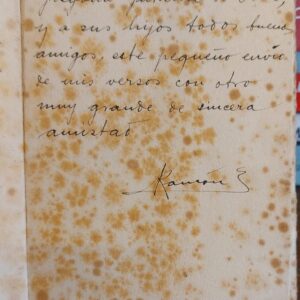 y a sus hijos todos buenos
amigos, este pequeño envío
de mis versos con otro
muy grande de sincera
amistad
Ramón